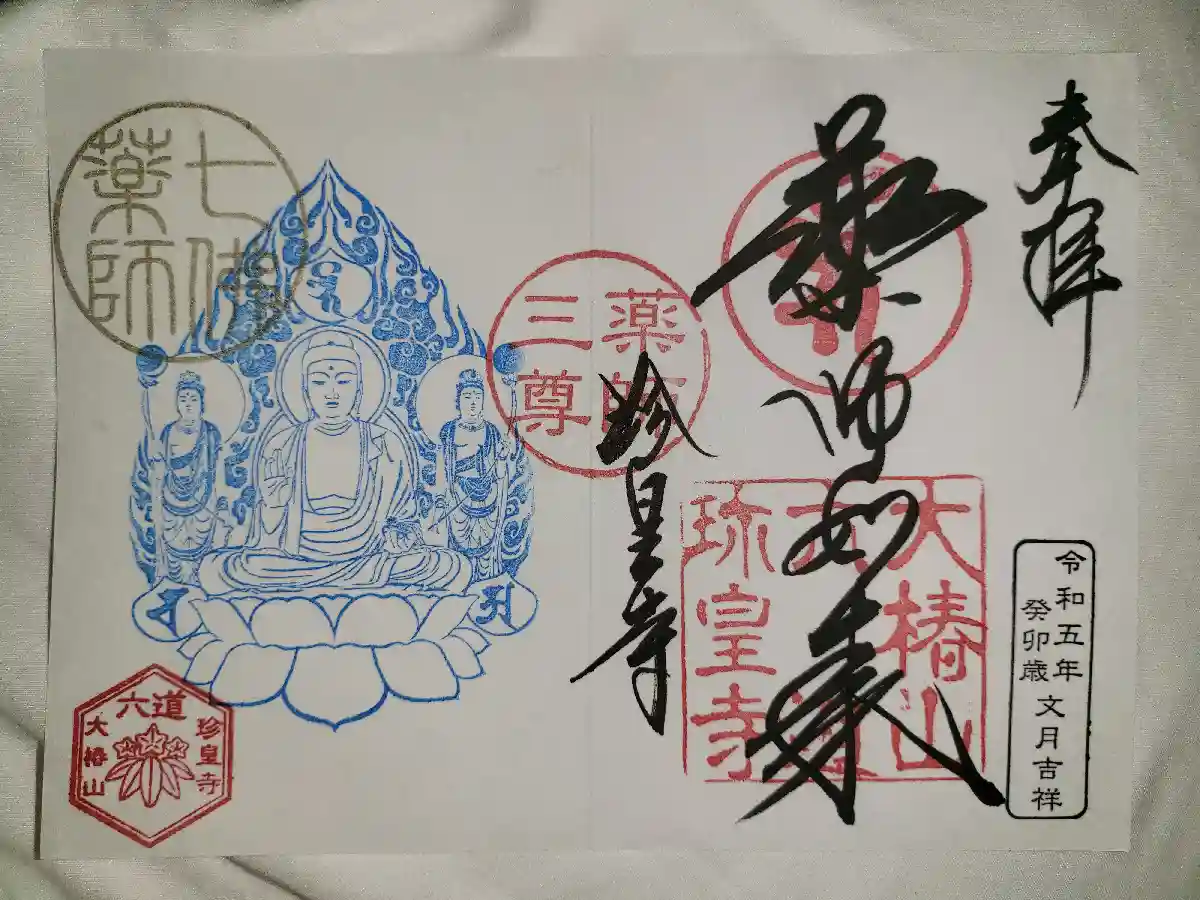 奉拝
令和五年
癸卯歳
文月吉祥
薬師如来
大椿山
六道
珍皇寺
珍皇寺
薬師
三尊
七佛
薬師
六道
珍皇寺
大椿山